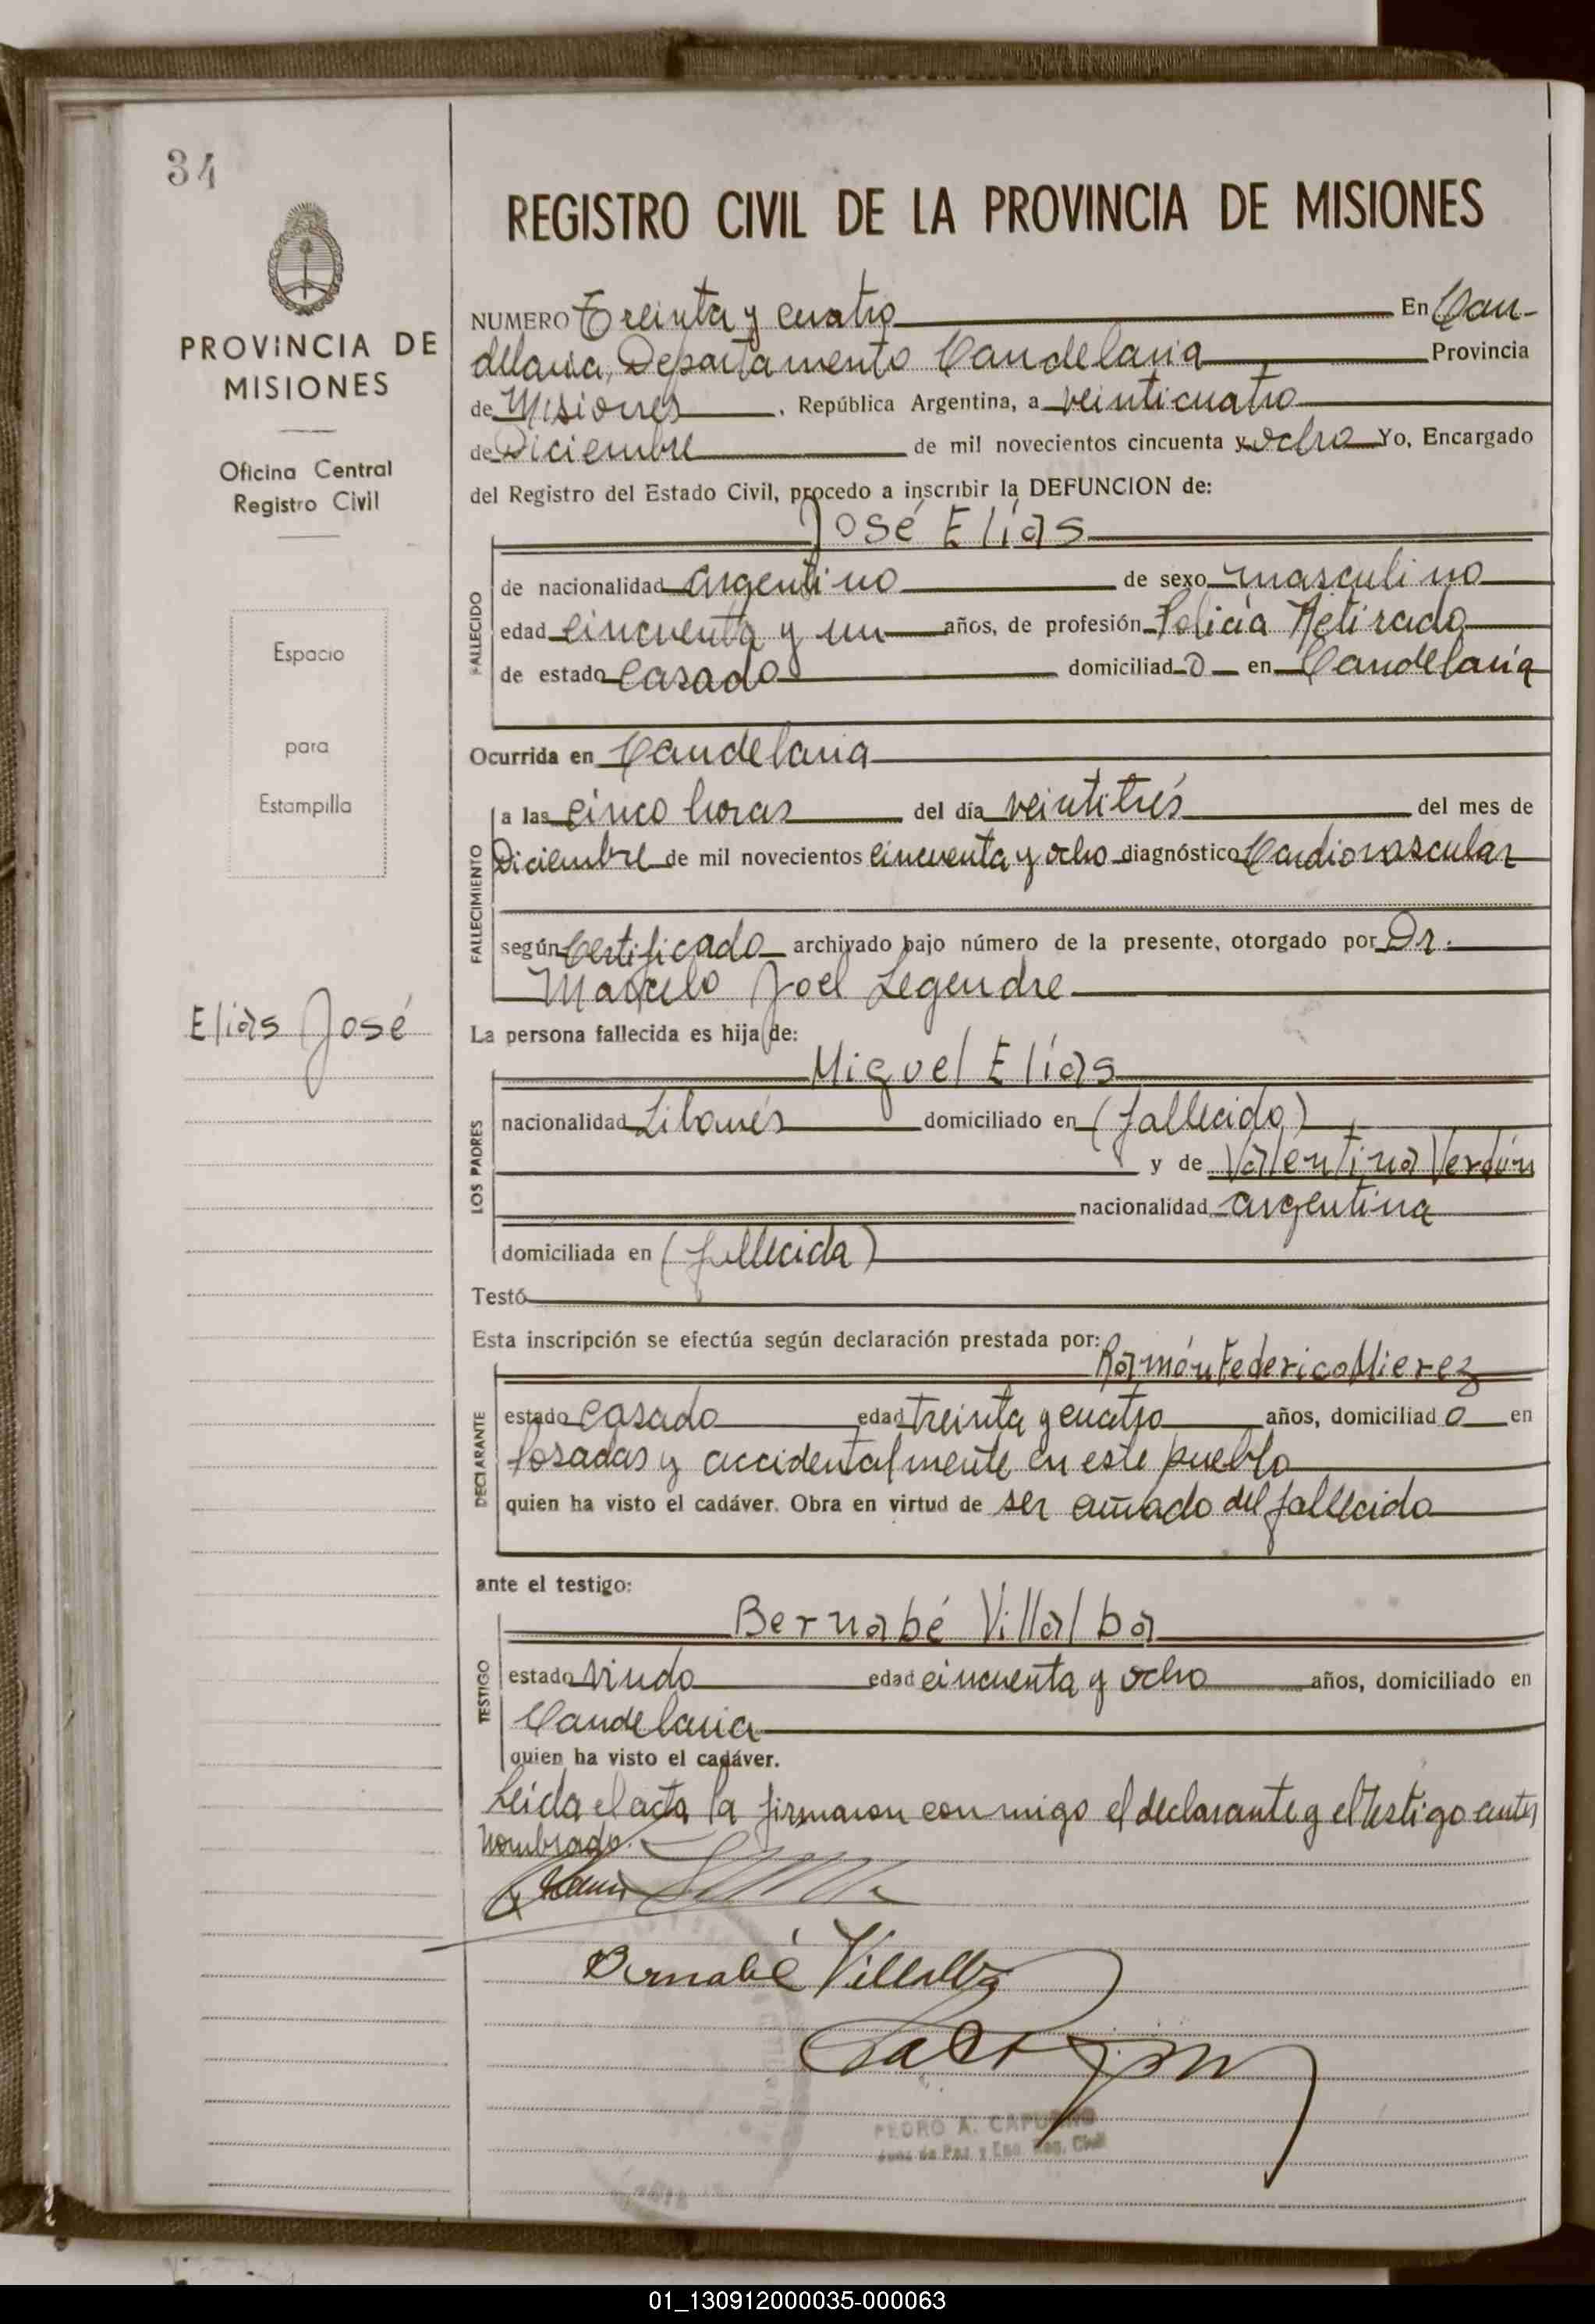 34
PROVINCIA DE
MISIONES
Oficina Central
Registro Civil
Espacio
para
Estampilla
Elías José
REGISTRO CIVIL DE LA PROVINCIA DE MISIONES
NUMERO Treinta y cuatro En Can-
delaria, Departamento Candelaria Provincia
de Misiones, República Argentina, a veinticuatro
de Diciembre de mil novecientos cincuenta y ocho Yo, Encargado
del Registro del Estado Civil, procedo a inscribir la DEFUNCION de:
José Elías
FALLECIDO
de nacionalidad argentino de sexo masculino
edad cincuenta y un años, de profesión Policía Retirado
de estado casado domiciliad o en Candelaria
Ocurrida en Candelaria
FALLECIMIENTO
a las cinco horas del día veintitrés del mes de
Diciembre de mil novecientos cincuenta y ocho diagnóstico Cardiovascular
según Certificado archivado bajo número de la presente, otorgado por Dr.
Marcelo Joel Legendre
La persona fallecida es hija de:
LOS PADRES
Miguel Elías
nacionalidad Libanés domiciliado en (fallecido)
y de Valentina Verdún
nacionalidad argentina
domiciliada en (fallecida)
Testó
Esta inscripción se efectúa según declaración prestada por:
DECLARANTE
Ramón Federico Mierez
estado casado edad treinta y cuatro años, domiciliad o en
Posadas y accidentalmente en este pueblo
quien ha visto el cadáver. Obra en virtud de ser cuñado del fallecido
ante el testigo:
TESTIGO
Bernabé Villalba
estado viudo edad cincuenta y ocho años, domiciliado en
Candelaria
quien ha visto el cadáver.
Leida el acta la firmaron conmigo el declarante y el testigo antes
nombrado.
Bernabé Villalba
PEDRO A. CAPU
Juez de Paz y Enc. Reg. Civil
01_130912000035-000063